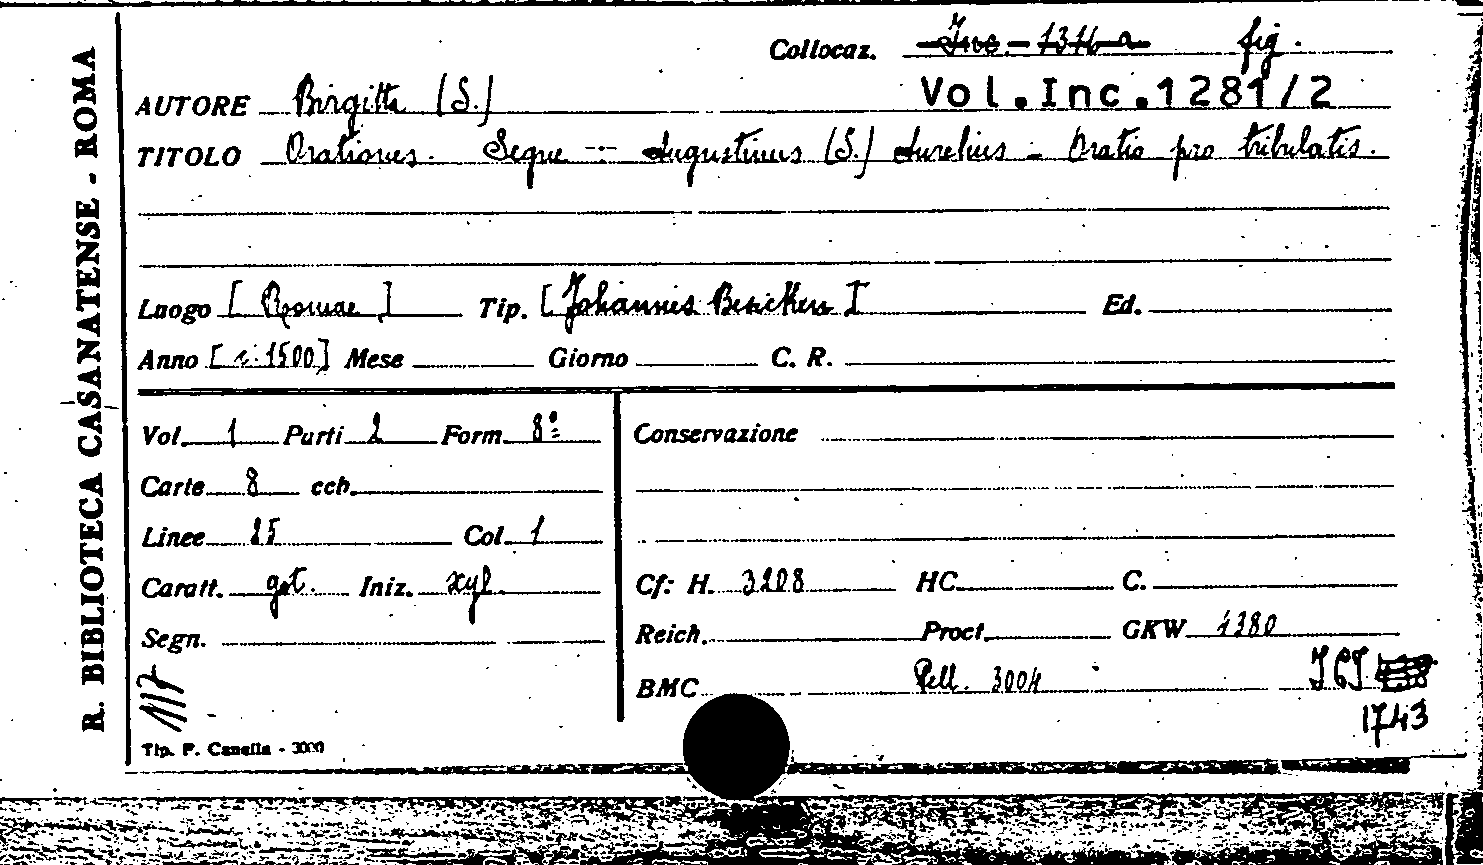 R. BIBLIOTECA CASANATENSE - ROMA
Collocaz. Inc. 1316 a fig.
AUTORE Birgitta (S.) Vol.Inc.1281/2
TITOLO Orationes. Segue -:- Augustinus (S.) Aurelius - Oratio pro tribulatis.
Luogo [Romae] Tip. [Johannis Besicken] Ed.
Anno [c. 1500] Mese Giorno C. R.
Vol. 1 Parti 2 Form. 8º Conservazione
Carte 8 cch.
Linee 25 Col. 1
Caratt. got. Iniz. xyl. Cf: H. 3208 HC. C.
Segn. Reich. Proct. GKW 4380
BMC Pell. 3004 IGI
117 1743
Tip. F. Canella - 3000